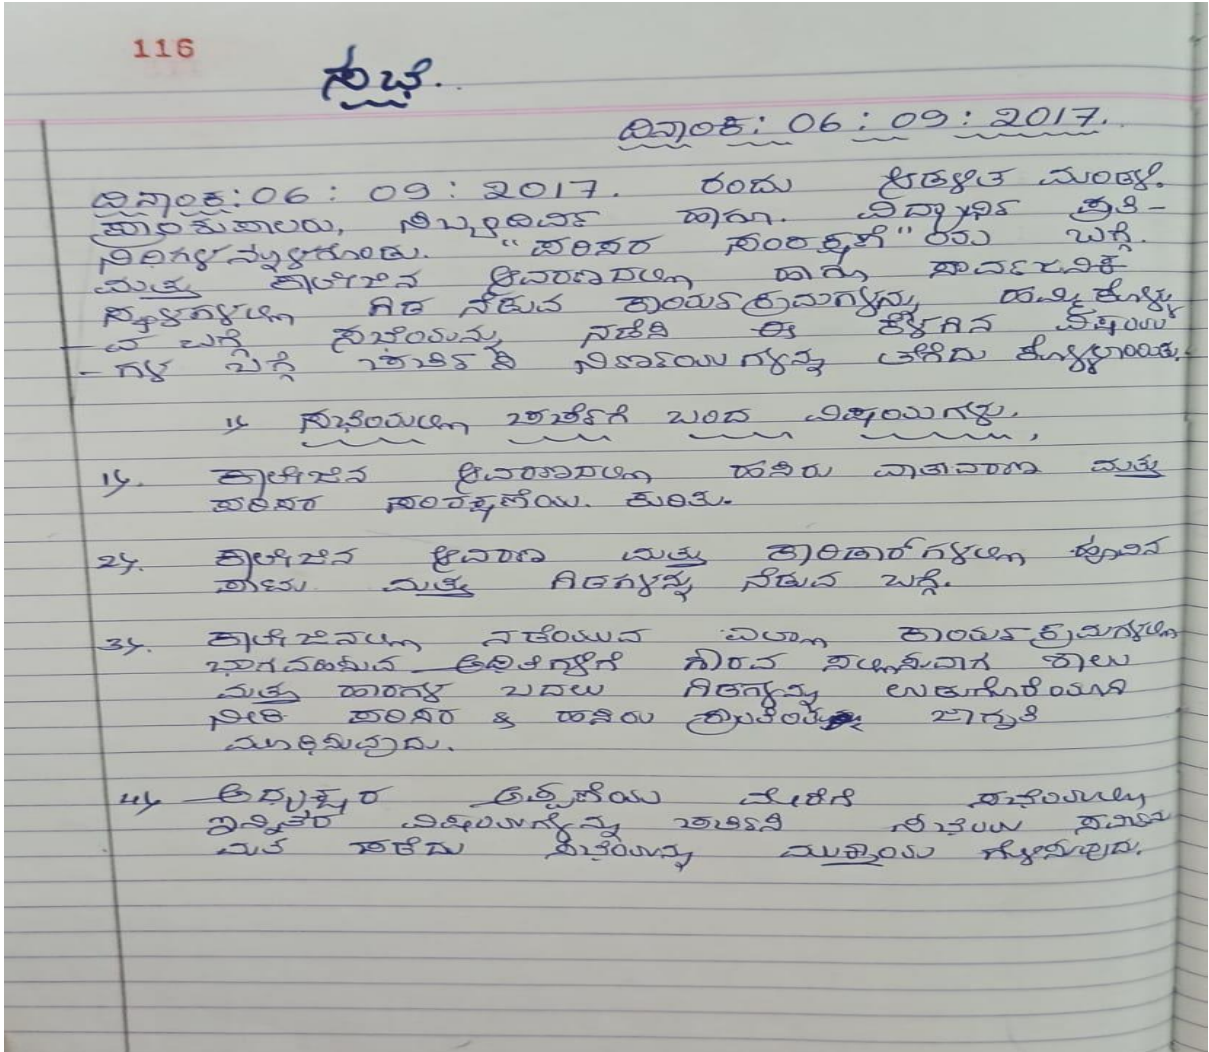 116
ಸಭೆ.
ದಿನಾಂಕ: 06 : 09 : 2017.
ದಿನಾಂಕ: 06 : 09 : 2017. ರಂದು ಆಡಳಿತ ಮಂಡಳಿ.
ಪ್ರಾಂಶುಪಾಲರು, ಸಿಬ್ಬಂದಿವರ್ಗ ಹಾಗೂ. ವಿದ್ಯಾರ್ಥಿ ಪ್ರತಿ-
ನಿಧಿಗಳನ್ನೊಳಗೊಂಡು. "ಪರಿಸರ ಸಂರಕ್ಷಣೆ" ಯ ಬಗ್ಗೆ.
ಮತ್ತು ಕಾಲೇಜಿನ ಆವರಣದಲ್ಲಿ ಹಾಗೂ ಸಾರ್ವಜನಿಕ
ಸ್ಥಳಗಳಲ್ಲಿ ಗಿಡ ನೆಡುವ ಕಾರ್ಯಕ್ರಮಗಳನ್ನು ಹಮ್ಮಿಕೊಳ್ಳು
- ವ ಬಗ್ಗೆ ಸಭೆಯನ್ನು ನಡೆಸಿ ಈ ಕೆಳಗಿನ ವಿಷಯ
- ಗಳ ಬಗ್ಗೆ ಚರ್ಚಿಸಿ ನಿರ್ಣಯಗಳನ್ನು ತೆಗೆದು ಕೊಳ್ಳಲಾಯಿತು.
1) ಸಭೆಯಲ್ಲಿ ಚರ್ಚೆಗೆ ಬಂದ ವಿಷಯಗಳು.
1). ಕಾಲೇಜಿನ ಆವರಣದಲ್ಲಿ ಹಸಿರು ವಾತಾವರಣ ಮತ್ತು
ಪರಿಸರ ಸಂರಕ್ಷಣೆಯ. ಕುರಿತು.
2). ಕಾಲೇಜಿನ ಆವರಣ ಮತ್ತು ಕಾರಿಡಾರ್‌ಗಳಲ್ಲಿ ಹೂವಿನ
ಕುಂಡ ಮತ್ತು ಗಿಡಗಳನ್ನು ನೆಡುವ ಬಗ್ಗೆ.
3). ಕಾಲೇಜಿನಲ್ಲಿ ನಡೆಯುವ ಎಲ್ಲಾ ಕಾರ್ಯಕ್ರಮಗಳಲ್ಲಿ
ಭಾಗವಹಿಸುವ ಅತಿಥಿಗಳಿಗೆ ಗೌರವ ಸಲ್ಲಿಸುವಾಗ ಶಾಲು
ಮತ್ತು ಹಾರಗಳ ಬದಲು ಗಿಡಗಳನ್ನು ಉಡುಗೊರೆಯಾಗಿ
ನೀಡಿ ಪರಿಸರ & ಹಸಿರು ಜಾಗೃತಿ
ಮೂಡಿಸುವುದು.
4) ಅಧ್ಯಕ್ಷರ ಅಪ್ಪಣೆಯ ಮೇರೆಗೆ ಸಭೆಯಲ್ಲಿ
ಇನ್ನಿತರ ವಿಷಯಗಳನ್ನು ಚರ್ಚಿಸಿ ಸಭೆಯ
ಮತ ಪಡೆದು ಸಭೆಯನ್ನು ಮುಕ್ತಾಯ ಗೊಳಿಸುವುದು.